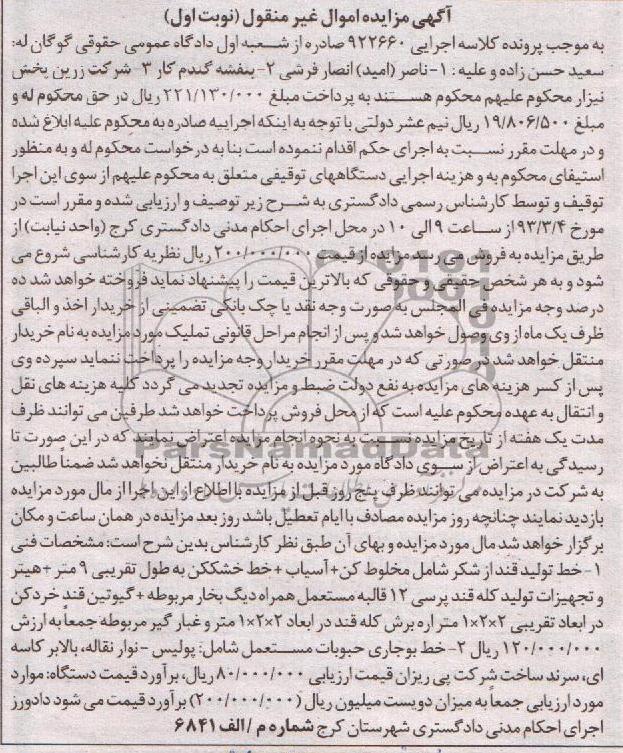 آگهی مزایده اموال غیر منقول (نوبت اول)
به موجب پرونده کلاسه اجرایی ۹۲۲۶۶۰ صادره از شعبه اول دادگاه عمومی حقوقی گوگان له:
سعید حسن زاده و علیه: ۱- ناصر (امید) انصار فرشی ۲- بنفشه گندم کار ۳- شرکت زرین پخش
نیزار محکوم علیهم محکوم هستند به پرداخت مبلغ ۲۲۱/۱۳۰/۰۰۰ ریال در حق محکوم له و
مبلغ ۱۹/۸۰۶/۵۰۰ ریال نیم عشر دولتی با توجه به اینکه اجراییه صادره به محکوم علیه ابلاغ شده
و در مهلت مقرر نسبت به اجرای حکم اقدام ننموده است بنا به درخواست محکوم له و به منظور
استیفای محکوم به و هزینه اجرایی دستگاههای توقیفی متعلق به محکوم علیهم از سوی این اجرا
توقیف و توسط کارشناس رسمی دادگستری به شرح زیر توصیف و ارزیابی شده و مقرر است در
مورخ ۹۳/۳/۴ از ساعت ۹ الی ۱۰ در محل اجرای احکام مدنی دادگستری کرج (واحد نیابت) از
طریق مزایده به فروش می رسد مزایده از قیمت ۲۰۰/۰۰۰/۰۰۰ ریال نظریه کارشناسی شروع می
شود و به هر شخص حقیقی و حقوقی که بالاترین قیمت را پیشنهاد نماید فروخته خواهد شد ده
درصد وجه مزایده فی المجلس به صورت وجه نقد یا چک بانکی تضمینی از خریدار اخذ و الباقی
ظرف یک ماه از وی وصول خواهد شد و پس از انجام مراحل قانونی تملیک مورد مزایده به نام خریدار
منتقل خواهد شد در صورتی که در مهلت مقرر خریدار وجه مزایده را پرداخت ننماید سپرده وی
پس از کسر هزینه های مزایده به نفع دولت ضبط و مزایده تجدید می گردد کلیه هزینه های نقل
و انتقال به عهده محکوم علیه است که از محل فروش پرداخت خواهد شد طرفین می توانند ظرف
مدت یک هفته از تاریخ مزایده نسبت به نحوه انجام مزایده اعتراض نمایند که در این صورت تا
رسیدگی به اعتراض از سوی دادگاه مورد مزایده به نام خریدار منتقل نخواهد شد ضمناً طالبین
به شرکت در مزایده می توانند ظرف پنج روز قبل از مزایده با اطلاع از این اجرا از مال مورد مزایده
بازدید نمایند چنانچه روز مزایده مصادف با ایام تعطیل باشد روز بعد مزایده در همان ساعت و مکان
برگزار خواهد شد مال مورد مزایده و بهای آن طبق نظر کارشناس بدین شرح است: مشخصات فنی
۱- خط تولید قند از شکر شامل مخلوط کن+ آسیاب + خط خشککن به طول تقریبی ۹ متر + هیتر
و تجهیزات تولید کله قند پرسی ۱۲ قالبه مستعمل همراه دیگ بخار مربوطه + گیوتین قند خردکن
در ابعاد تقریبی ۲×۲×۱ متر اره برش کله قند در ابعاد ۲×۲×۱ متر و غبار گیر مربوطه جمعاً به ارزش
۱۲۰/۰۰۰/۰۰۰ ریال ۲- خط بوجاری حبوبات مستعمل شامل: پولیس - نوار نقاله، بالابر کاسه
ای، سرند ساخت شرکت پی ریزان قیمت ارزیابی ۸۰/۰۰۰/۰۰۰ ریال، برآورد قیمت دستگاه: موارد
مورد ارزیابی جمعاً به میزان دویست میلیون ریال (۲۰۰/۰۰۰/۰۰۰) برآورد قیمت می شود دادورز
اجرای احکام مدنی دادگستری شهرستان کرج شماره م /الف ۶۸۴۱
ParsNamadData